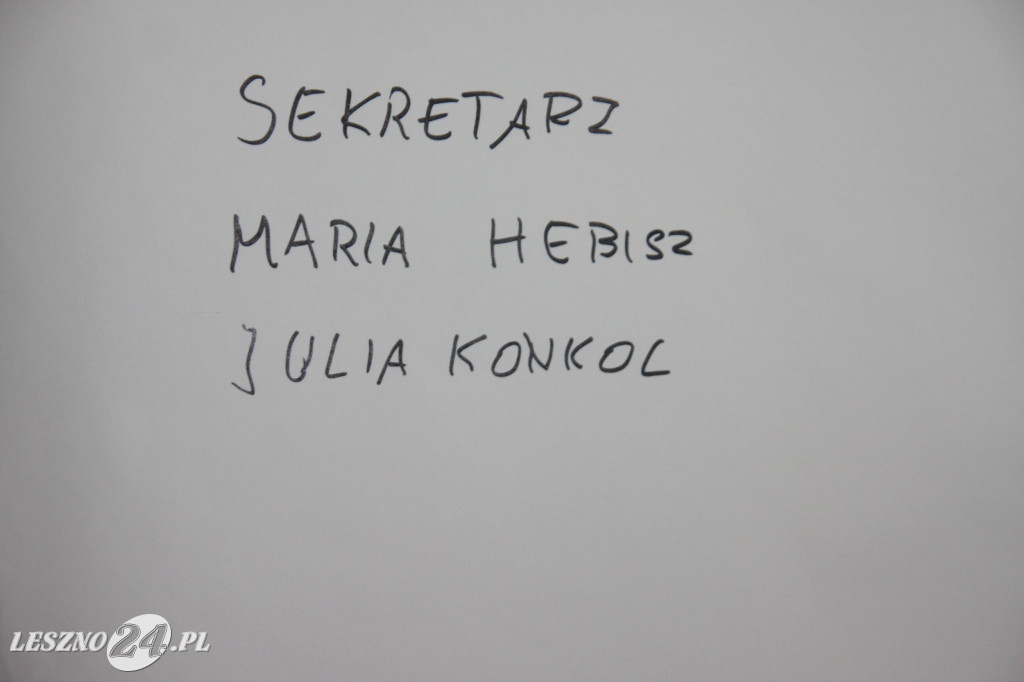 SEKRETARZ
MARIA HEBISZ
JULIA KONKOL
LESZNO24.PL